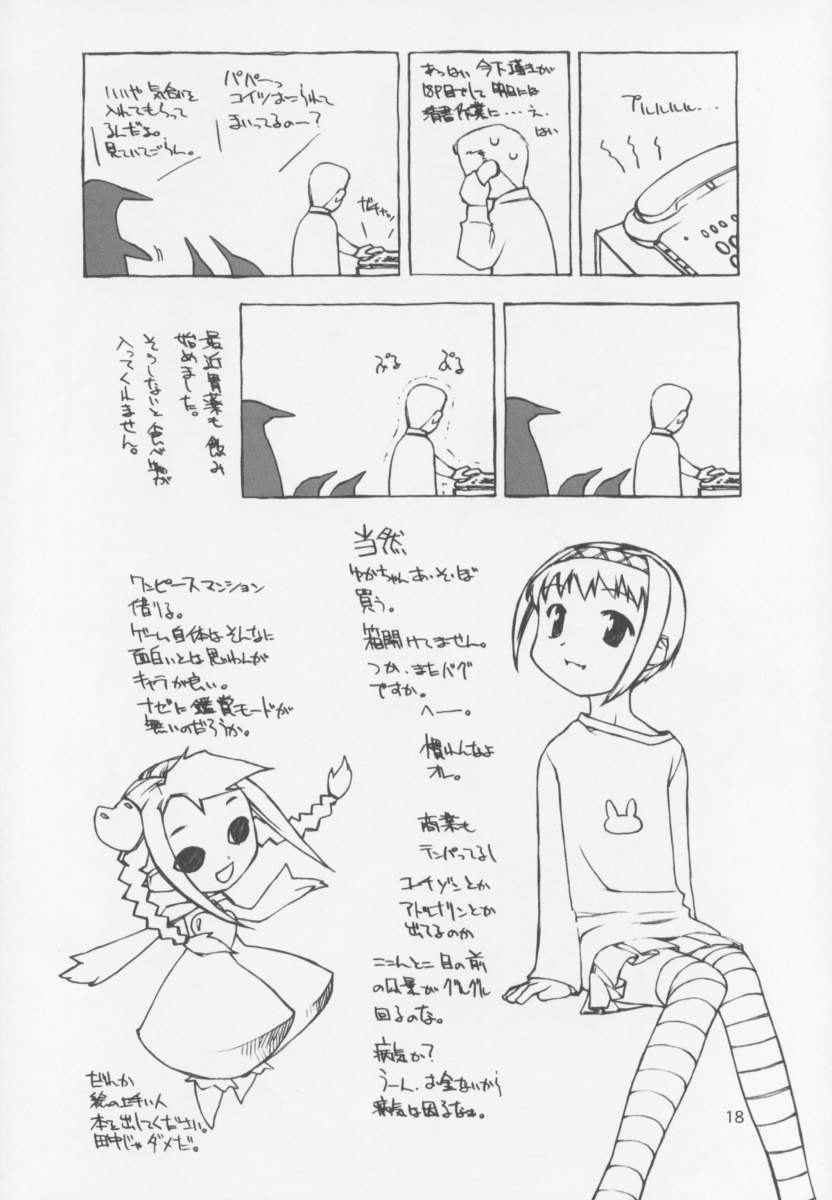 プルルルル...
あっはい 今下描きが
明日には
清書作業に・・・・え、
はい
ガチャッ
パパーっ
コイツおこられて
まいってるのー？
いいや 気合いを
入れてもらって
るんだよ。
見ていてごらん。
ぷる
ぷる
最近胃薬も飲み
始めました。
そうしないと食べ物が
入ってくれません。
当然
ゆかちゃんあ・そ・ぼ
買う。
箱開けてません。
つか、またバグ
ですか。
へー。
慣れんなよ
オレ。
商業も
テンパってるし
コルチゾンとか
アドレナリンとか
出てるのか
ここんとこ目の前
の風景がグルグル
回るのな。
病気か？
うーん、お金ないから
病気は困るなぁ。
ワンピースマンション
借りる。
ゲーム自体はそんなに
面白いとは思わんが
キャラが良い。
ナゼに鑑賞モードが
無いのだろうか。
だれか
絵の上手い人
本を出してください。
田中じゃダメだ。
18